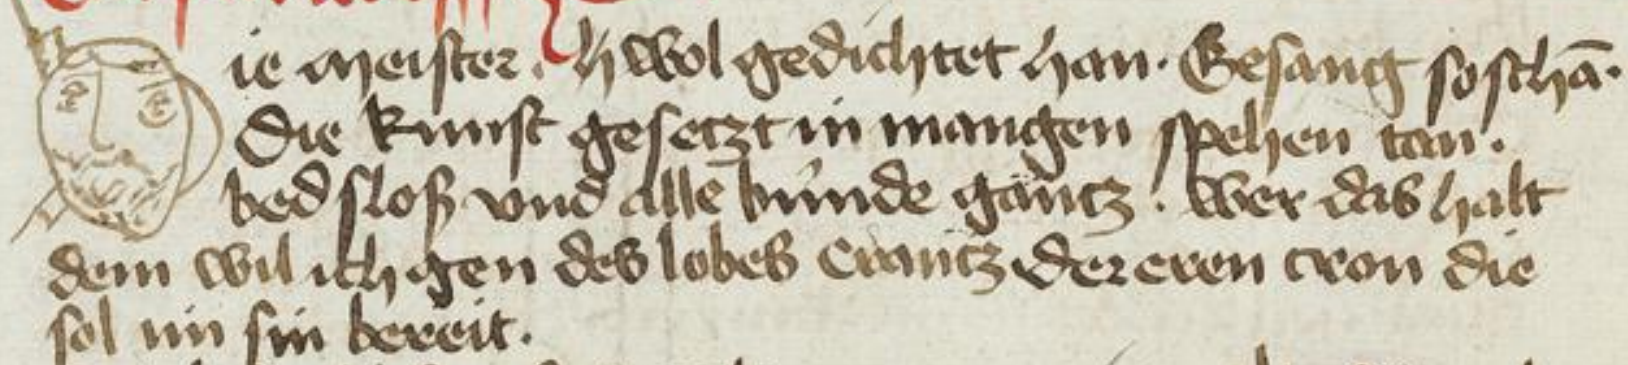 ie meister. h wol gedichtet han. Gesang so schā.
Die kunst gesetzt in mangen spehen tan.
bed sloß vnd alle bunde gantz. wer das halt
dem wil ich gen des lobes crantz der eren cron die
sol im sin bereit.